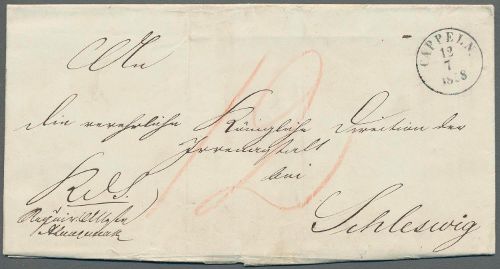 An
CAPPELN.
12
7
1858
12
die verehrliche Königliche Direction der
Irrenanstalt
bei
Schleswig
K.d.S.